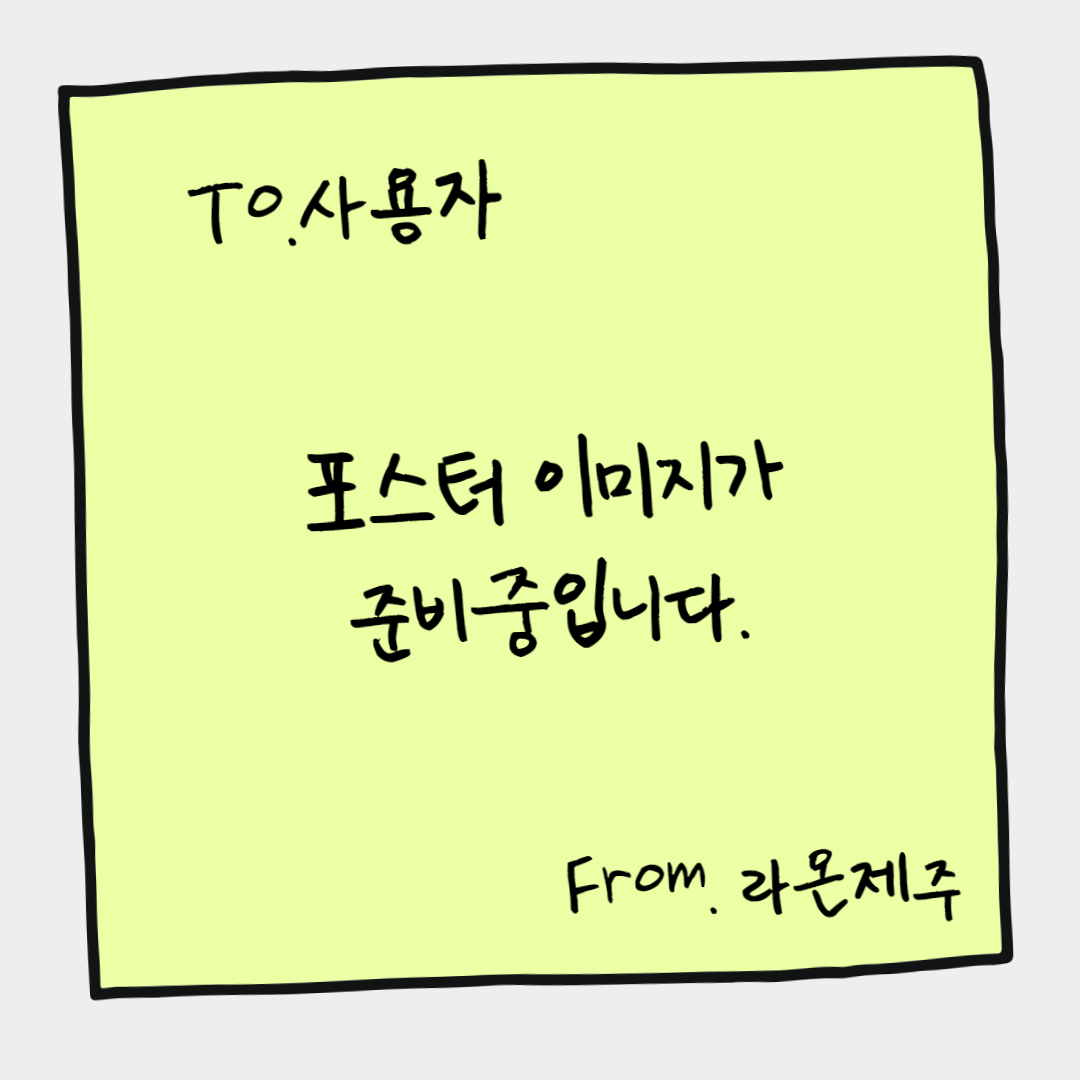 TO.사용자
포스터 이미지가
준비중입니다.
From. 라온제주